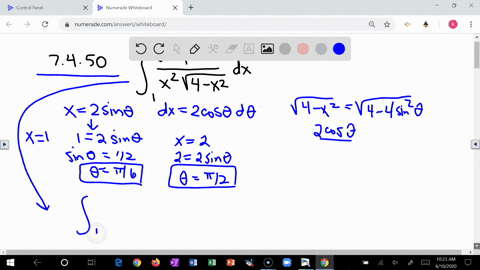 Control Panel
Numerade Whiteboard
numerade.com/answers/whiteboard/
7.4.50
∫₁ 1/(x²√(4-x²)) dx
x = 2sinθ dx = 2cosθ dθ √(4-x²) = √(4-4sin²θ)
2cosθ
x=1 1 = 2sinθ x = 2
sinθ = 1/2 2 = 2sinθ
θ = π/6 θ = π/2
∫₁
10:21 AM
6/10/2020